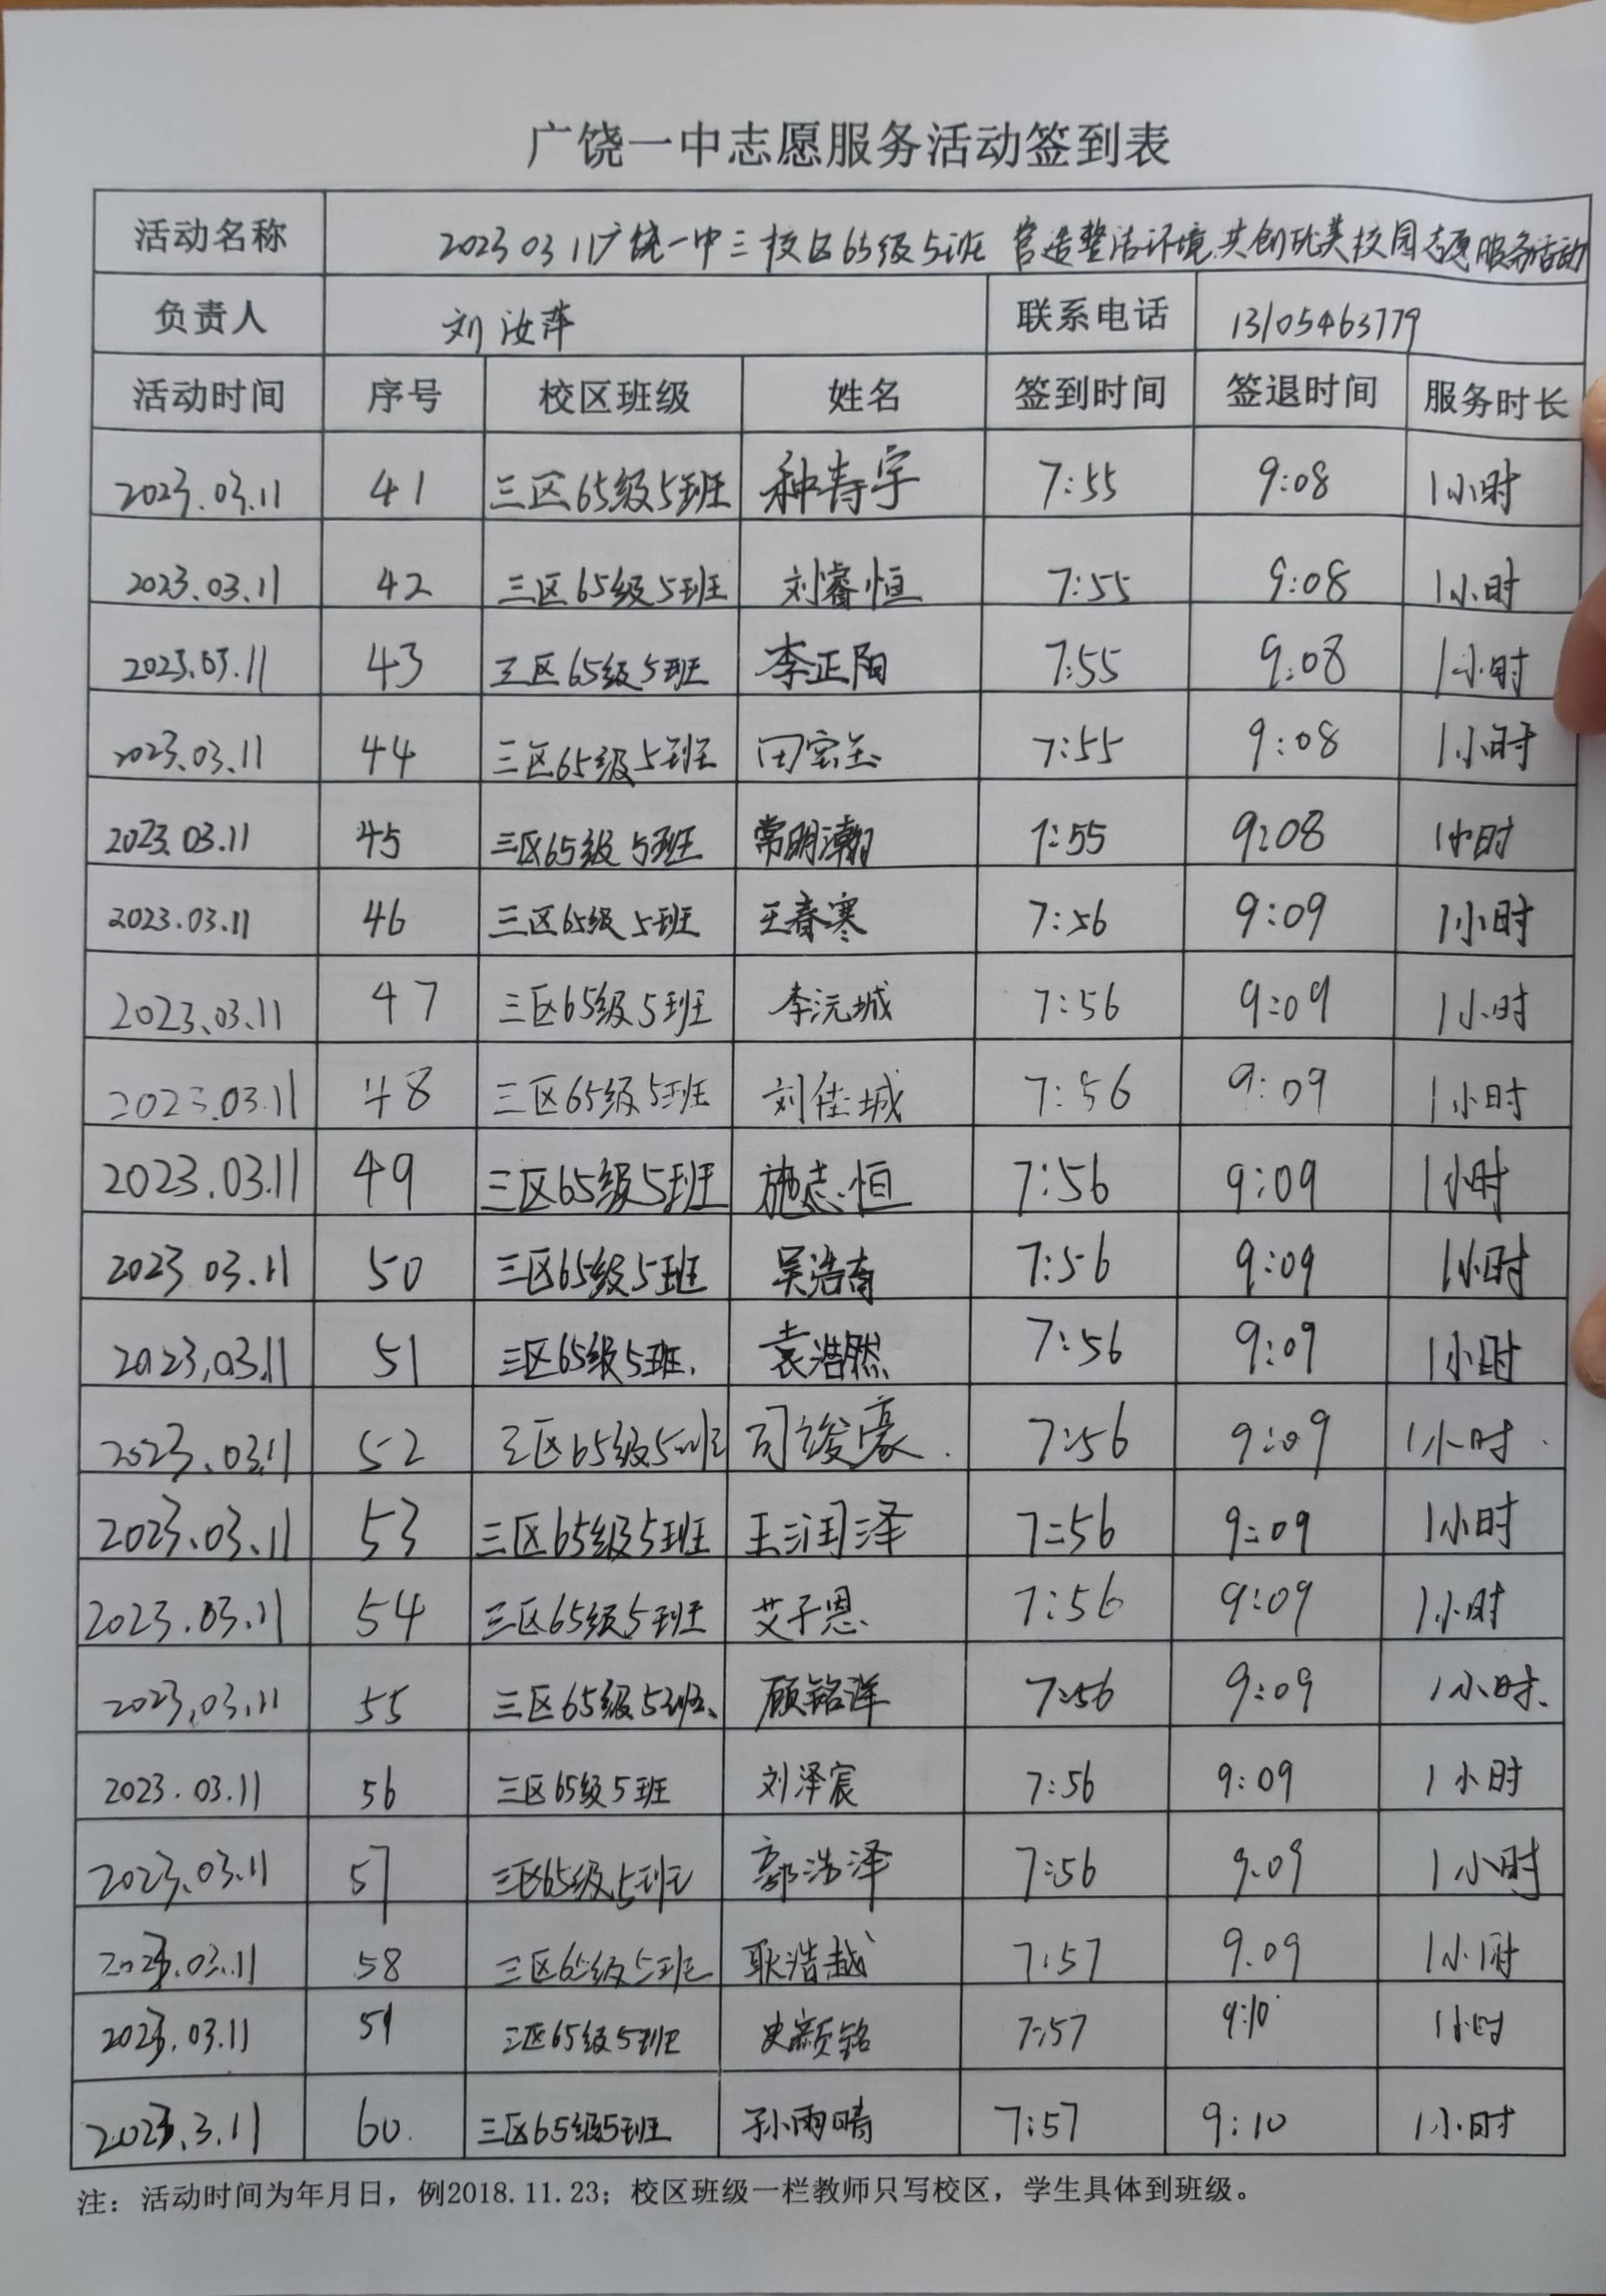 广饶一中志愿服务活动签到表
活动名称 20230311广饶一中三校区65级5班 营造整洁环境.共创优美校园志愿服务活动
负责人 刘汝萍 联系电话 13105463779
活动时间 序号 校区班级 姓名 签到时间 签退时间 服务时长
2023.03.11 41 三区65级5班 种寿宇 7:55 9:08 1小时
2023.03.11 42 三区65级5班 刘睿恒 7:55 9:08 1小时
2023.03.11 43 三区65级5班 李正阳 7:55 9:08 1小时
2023.03.11 44 三区65级5班 田宝玉 7:55 9:08 1小时
2023.03.11 45 三区65级5班 常明瀚 7:55 9:08 1小时
2023.03.11 46 三区65级5班 王春寒 7:56 9:09 1小时
2023.03.11 47 三区65级5班 李沅城 7:56 9:09 1小时
2023.03.11 48 三区65级5班 刘佳城 7:56 9:09 1小时
2023.03.11 49 三区65级5班 施志恒 7:56 9:09 1小时
2023.03.11 50 三区65级5班 吴浩 7:56 9:09 1小时
2023.03.11 51 三区65级5班. 袁浩然 7:56 9:09 1小时
2023.03.11 52 三区65级5班 司竣豪. 7:56 9:09 1小时.
2023.03.11 53 三区65级5班 王润泽 7:56 9:09 1小时
2023.03.11 54 三区65级5班 艾子恩 7:56 9:09 1小时
2023.03.11 55 三区65级5班、 顾铭洋 7:56 9:09 1小时、
2023.03.11 56 三区65级5班 刘泽宸 7:56 9:09 1小时
2023.03.11 57 三区65级5班 郭浩泽 7:56 9.09 1小时
2023.03.11 58 三区65级5班 耿浩越 7:57 9.09 1小时
2023.03.11 59 三区65级5班 史颖铭 7:57 9:10 1小时
2023.3.11 60. 三区65级5班 孙雨晴 7:57 9:10 1小时
注：活动时间为年月日，例2018.11.23；校区班级一栏教师只写校区，学生具体到班级。